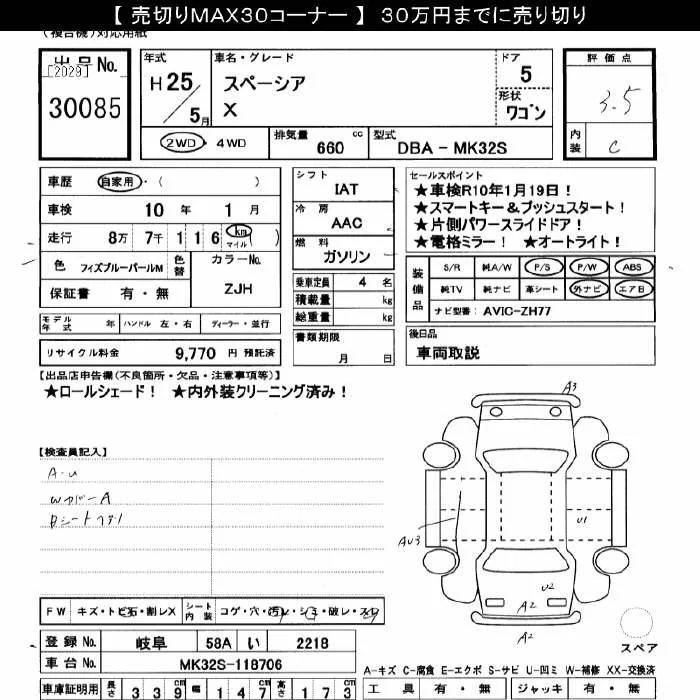 【 売切りMAX30コーナー 】 30万円までに売り切り
(複合機)対応用紙
出品No.
[2029]
30085
年式
H25/5月
車名・グレード
スペーシア
X
ドア
5
形状
ワゴン
評価点
3.5
内装
C
2WD・4WD
排気量 660 cc
型式 DBA-MK32S
車歴 自家用・( )
車検 10年 1月
走行 8万 7千 1 1 6 km マイル ( )
色 フィズブルーパールM 色替
カラーNo.
ZJH
保証書 有・無
シフト
IAT
冷房
AAC
燃料
ガソリン
乗車定員 4 名
積載量 kg
総重量 kg
書類期限
月 日
セールスポイント
★車検R10年1月19日!
★スマートキー&プッシュスタート!
★片側パワースライドドア!
★電格ミラー! ★オートライト!
装備品
S/R 純A/W P/S P/W ABS
純TV 純ナビ 革シート 外ナビ エアB
ナビ型番: AVIC-ZH77
モデル年式 年 ハンドル 左・右 ディーラー・並行
リサイクル料金 9,770 円 預託済
後日品
車両取説
【出品店申告欄(不良箇所・欠品・注意事項等)】
★ロールシェード! ★内外装クリーニング済み!
【検査員記入】
A-U
WカバーA
A3
AU3
U1
U2
A2
A2
スペア
FW キズ・トビ石・割レX
シート内装 コゲ・穴・汚レ・シミ・破レ・スレ
登録No. 岐阜 58A い 2218
車台No. MK32S-118706
A-キズ C-腐食 E-エクボ S-サビ U-凹ミ W-補修 XX-交換済
車庫証明用 長さ 3 3 9 幅 1 4 7 高さ 1 7 3
工具 有・無 ジャッキ 有・無